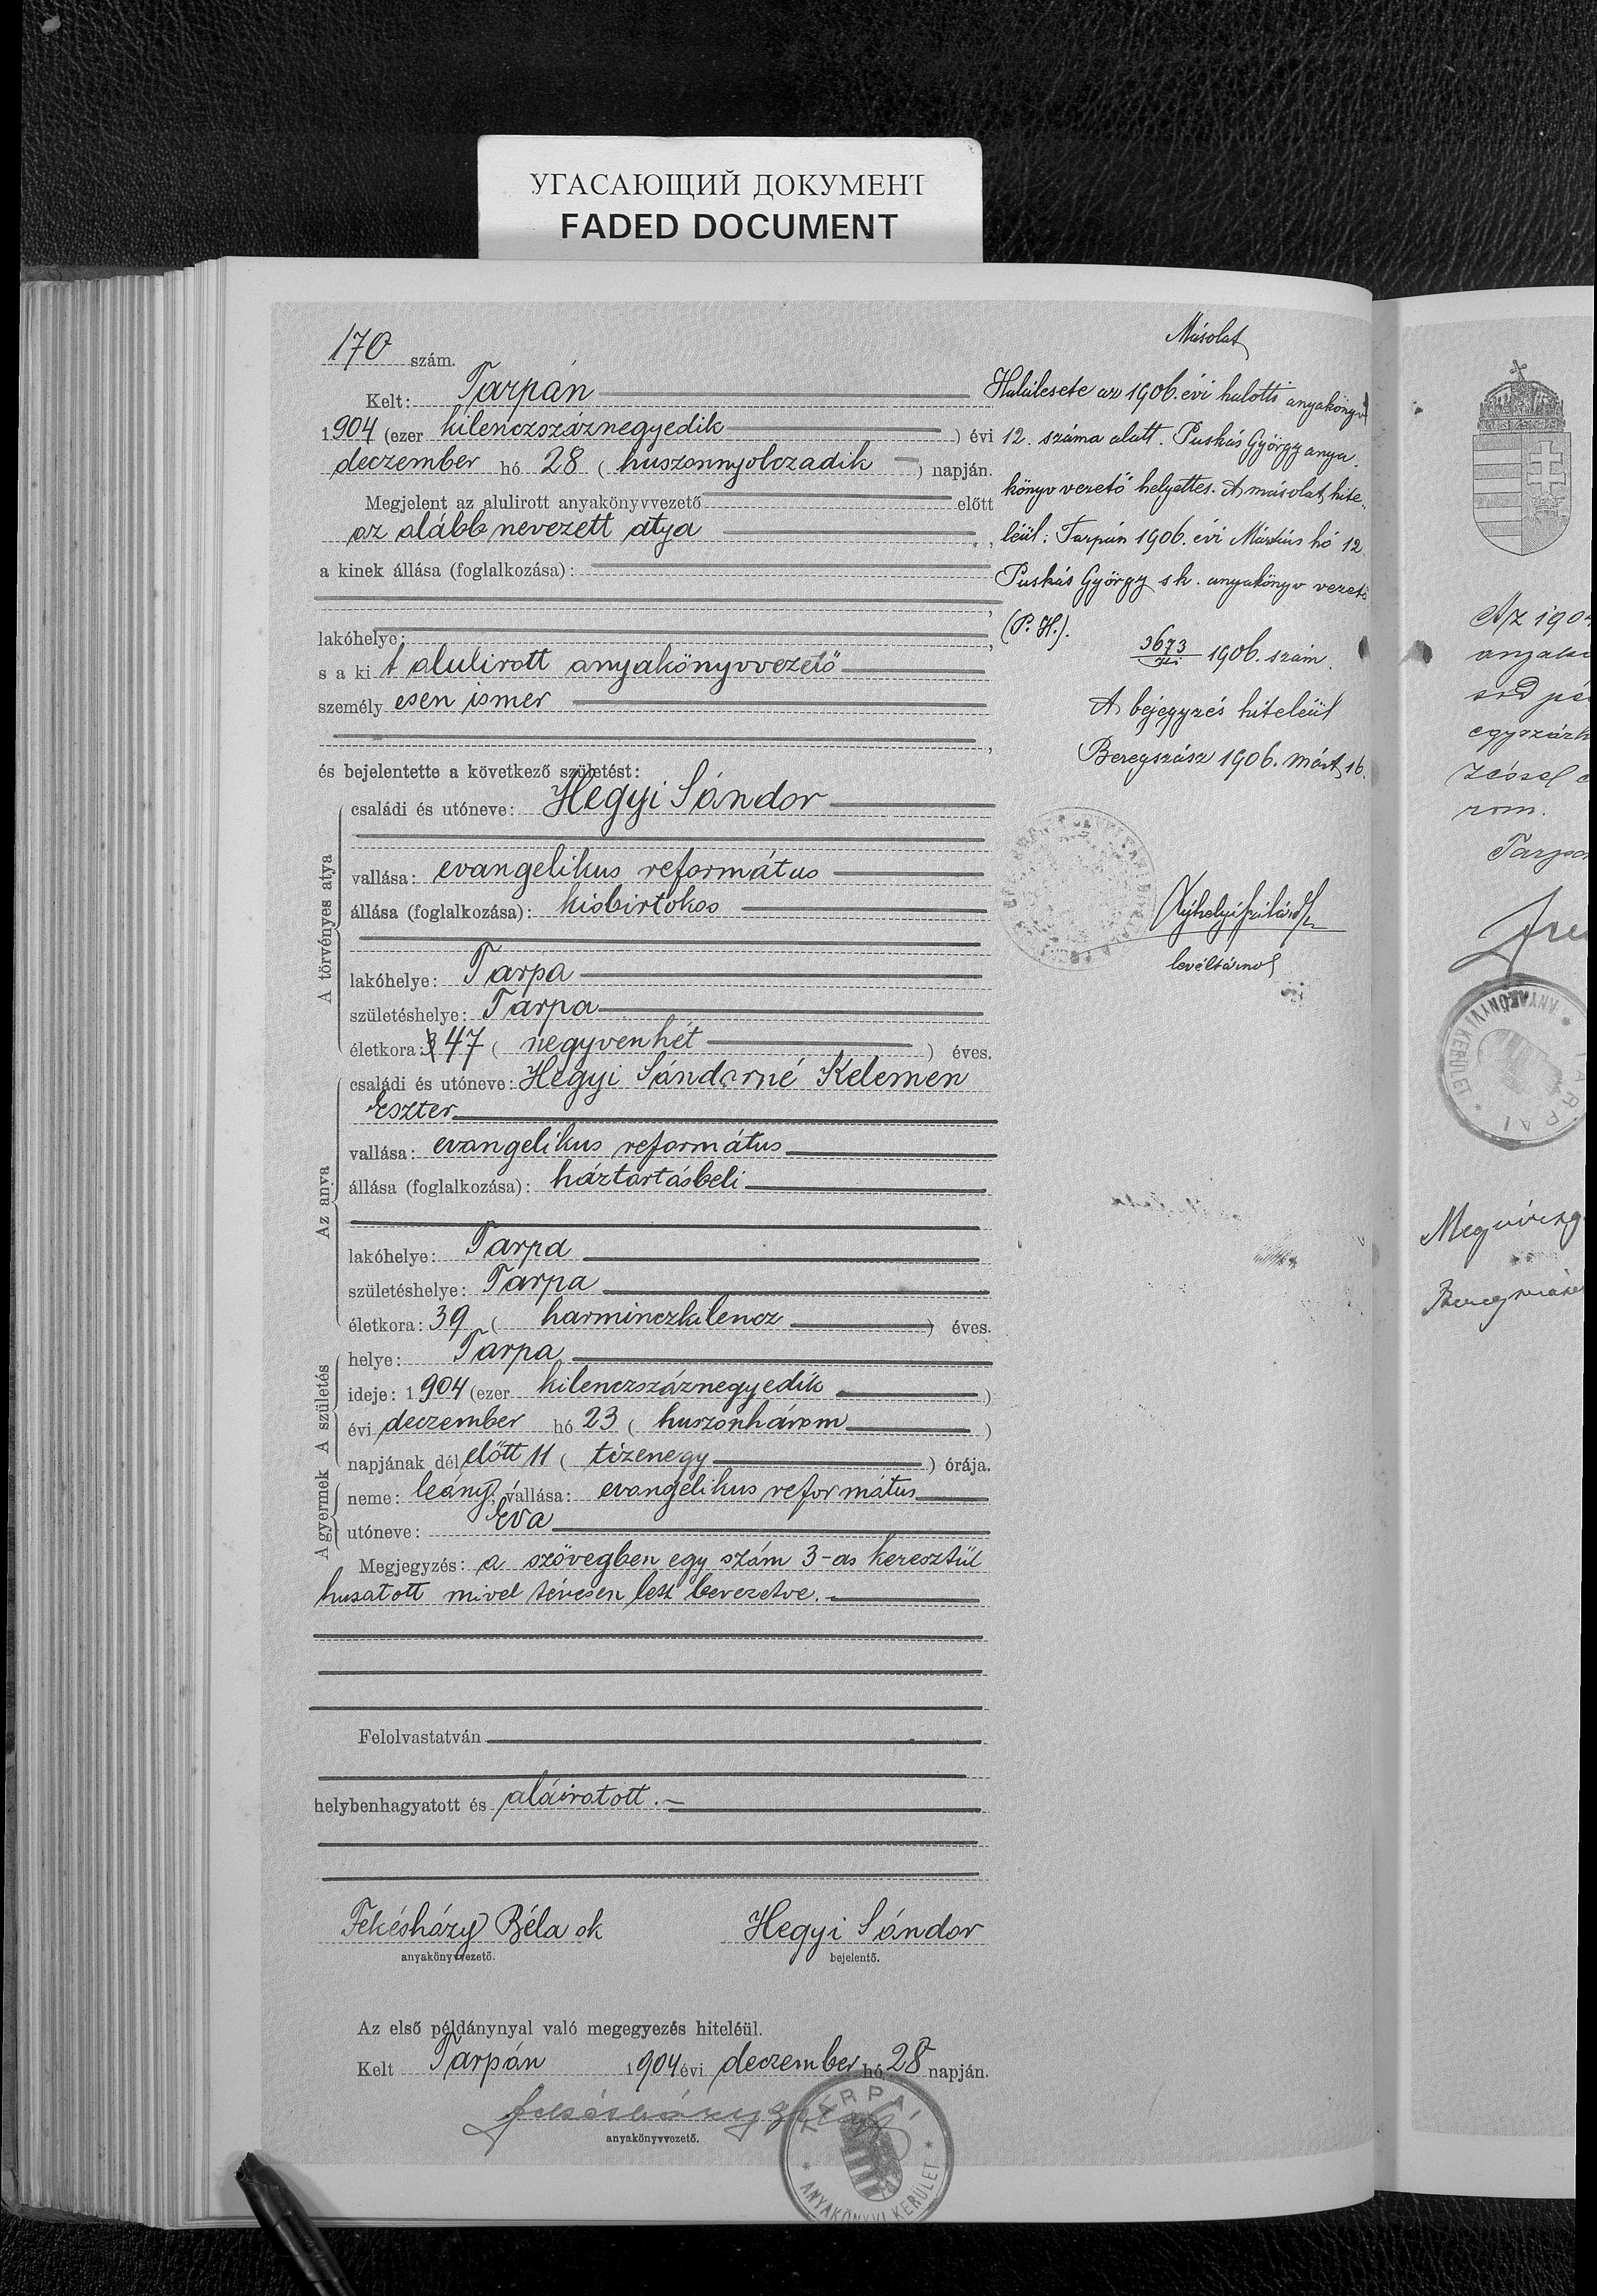 УГАСАЮЩИЙ ДОКУМЕНТ
FADED DOCUMENT
170 szám.
Kelt: Tarpán
1904 (ezer kilenczszáznegyedik ) évi
deczember hó 28 ( huszonnyolczadik ) napján.
Megjelent az alulirott anyakönyvvezető előtt
az alább nevezett atya ,
a kinek állása (foglalkozása):
,
lakóhelye: ,
s a ki t alulirott anyakönyvvezető
személy esen ismer
,
és bejelentette a következő születést:
A törvényes atya
családi és utóneve: Hegyi Sándor
vallása: evangelikus református
állása (foglalkozása): kisbirtokos
lakóhelye: Tarpa
születéshelye: Tarpa
életkora: 3 47 ( negyvenhét ) éves.
Az anya
családi és utóneve: Hegyi Sándorné Kelemen
Eszter
vallása: evangelikus református
állása (foglalkozása): háztartásbeli
lakóhelye: Tarpa
születéshelye: Tarpa
életkora: 39 ( harminczkilencz ) éves.
A születés
helye: Tarpa
ideje: 1904 (ezer kilenczszáznegyedik )
évi deczember hó 23 ( huszonhárom )
napjának dél előtt 11 ( tizenegy ) órája.
A gyermek
neme: leány, vallása: evangelikus református
utóneve: Eva
Megjegyzés: a szövegben egy szám 3-as keresztül
huzatott mivel tévesen lett bevezetve.
Felolvastatván
helybenhagyatott és aláiratott.
Fekésházy Béla sk Hegyi Sándor
anyakönyvvezető. bejelentő.
Az első példánynyal való megegyezés hiteléül.
Kelt Tarpán 1904 évi deczember hó 28 napján.
Fekésházy Béla
anyakönyvvezető.
TARPAI
* ANYAKÖNYVI KERÜLET *
Másolat
Halálesete az 1906. évi halotti anyakönyv
12. száma alatt. Puskás György anya-
könyv vezető helyettes. A másolat hite-
léül: Tarpán 1906. évi Márczius hó 12
Puskás György sk. anyakönyv vezető
(P. H.).
3673 1906. szám.
A bejegyzés hiteléül
Beregszász 1906. márt 16.
levéltárnok
Az 1904
egyszázh
rom.
Tarpá
TARPAI
* ANYAKÖNYVI KERÜLET *
Megvizsg